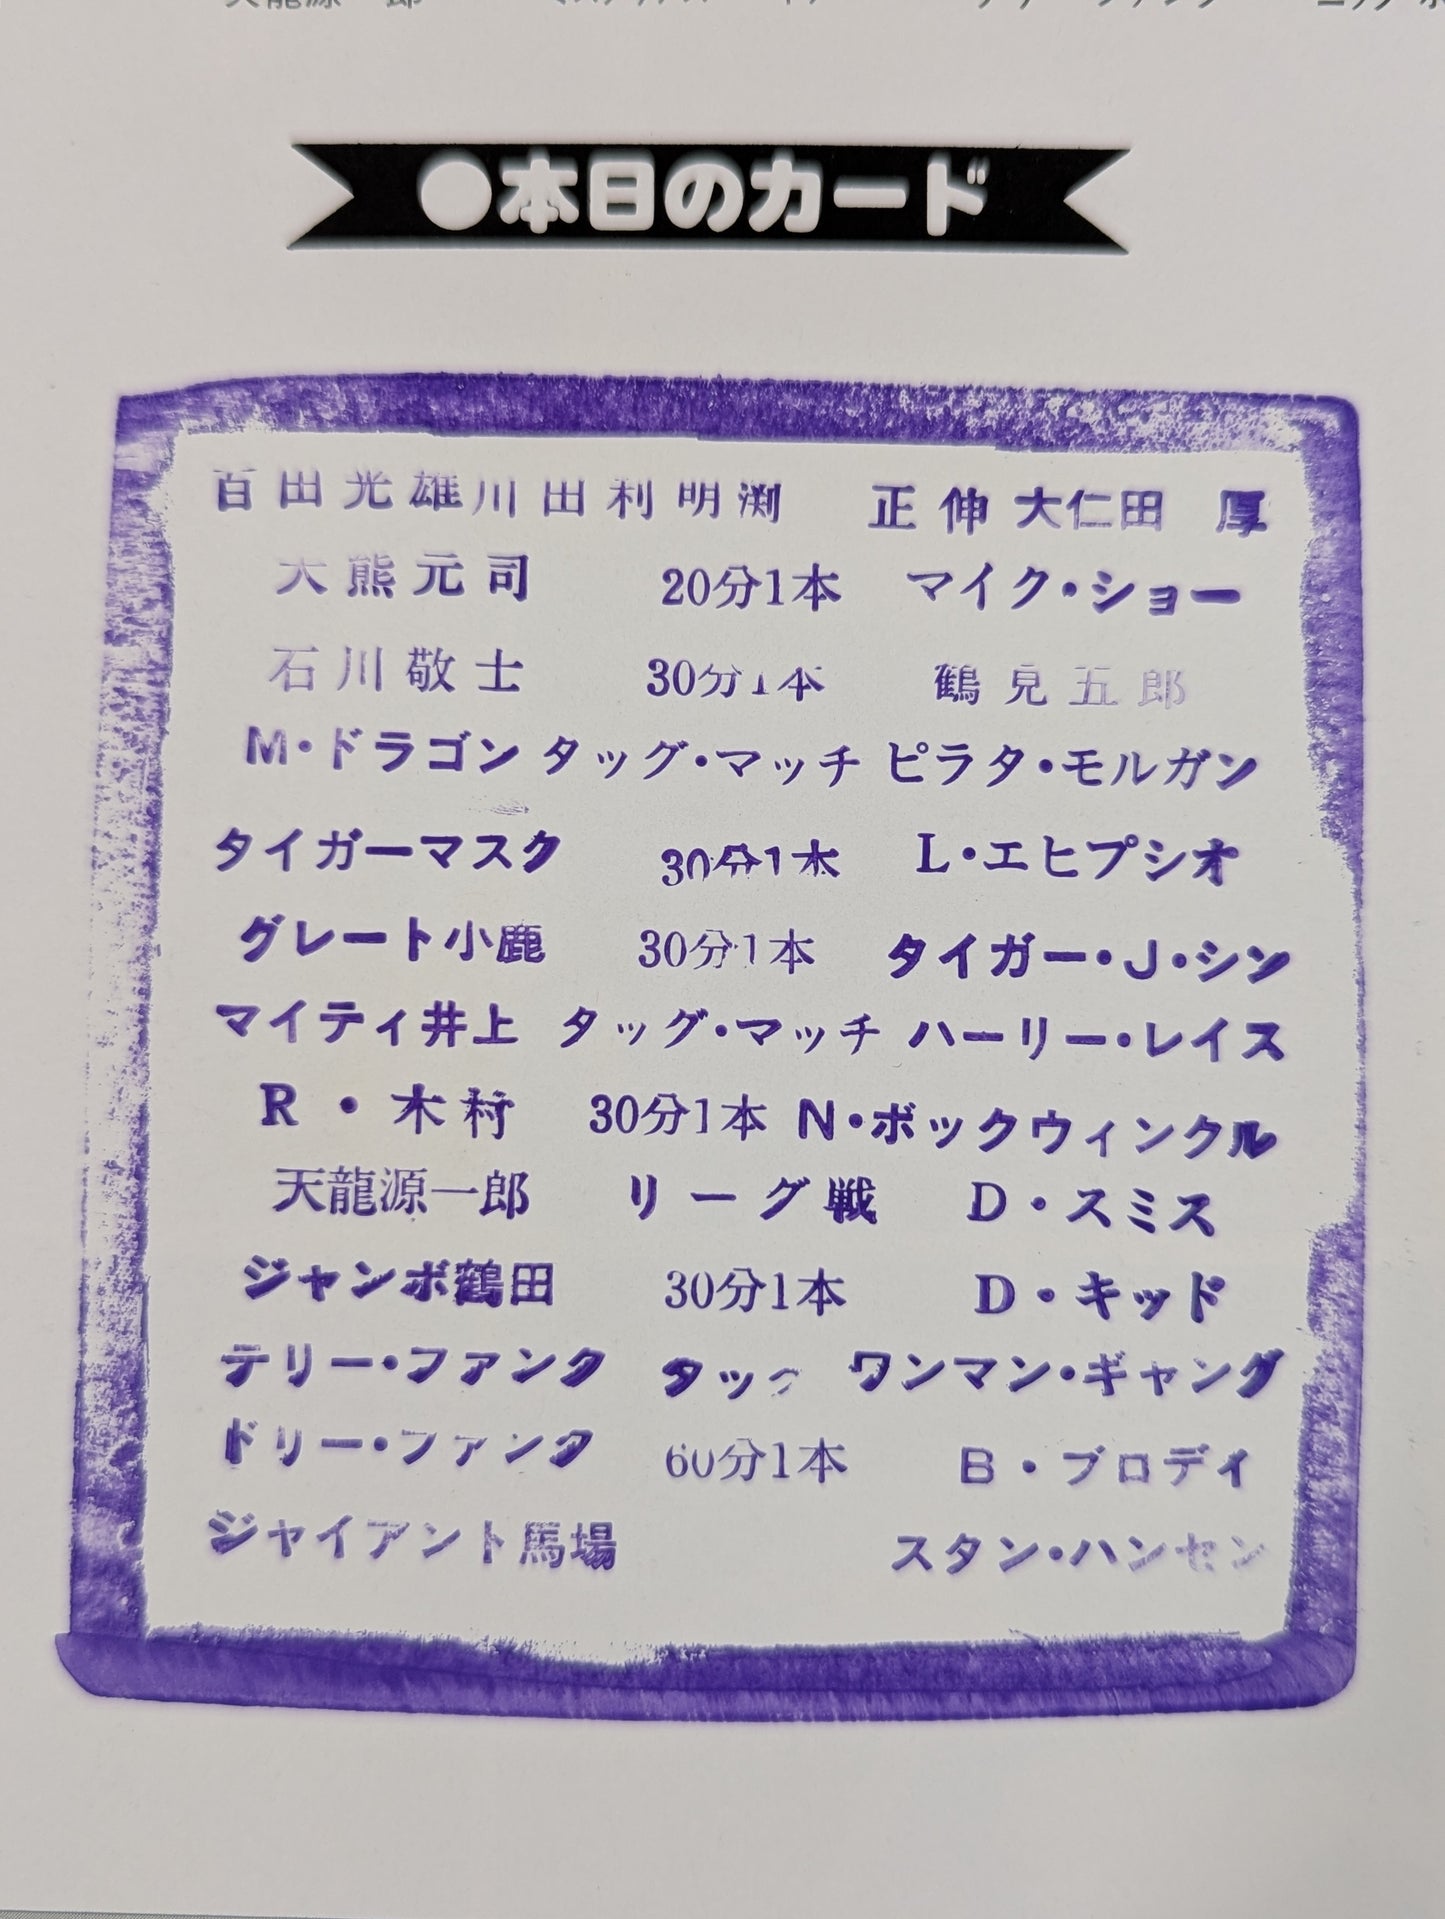 ●本日のカード
百田光雄川田利明渕 正伸大仁田 厚
大熊元司 20分1本 マイク・ショー
石川敬士 30分1本 鶴見五郎
M・ドラゴン タッグ・マッチ ピラタ・モルガン
タイガーマスク 30分1本 L・エヒプシオ
グレート小鹿 30分1本 タイガー・J・シン
マイティ井上 タッグ・マッチ ハーリー・レイス
R・木村 30分1本 N・ボックウィンクル
天龍源一郎 リーグ戦 D・スミス
ジャンボ鶴田 30分1本 D・キッド
テリー・ファンク タッグ ワンマン・ギャング
ドリー・ファンク 60分1本 B・ブロディ
ジャイアント馬場 スタン・ハンセン